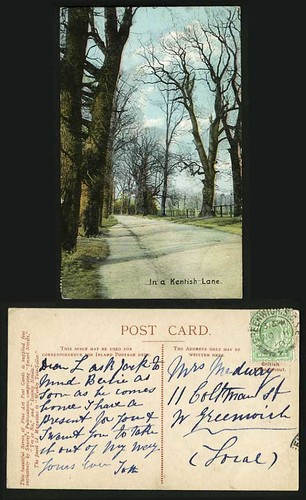 In a Kentish Lane.
POST CARD.
THIS SPACE MAY BE USED FOR
CORRESPONDENCE FOR INLAND POSTAGE ONLY.
THE ADDRESS ONLY MAY BE
WRITTEN HERE.
Dear L ask Jack to
mind Bertie as
soon as he comes
home I have a
present for you &
I want you to take
it out of my way.
Yours Ever
Mrs Medway
11 Colttman St
W Greenwich
(Local)